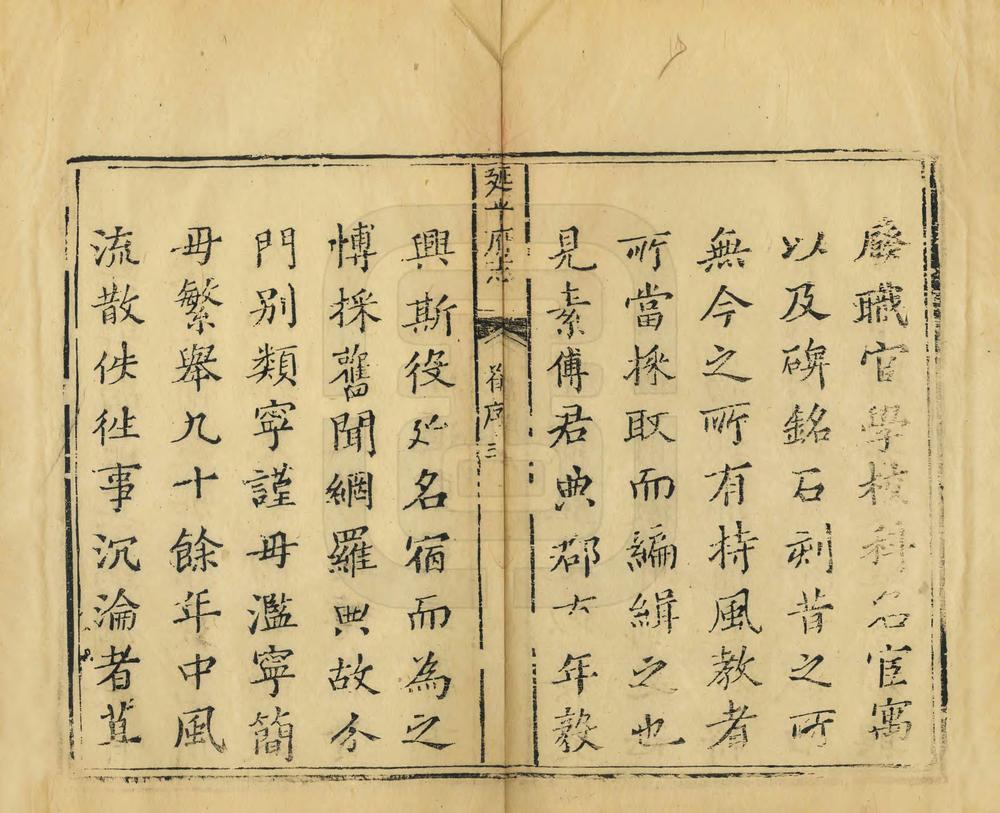 廢職官學校科名宦寓
以及碑銘石刻昔之所
無今之所有持風教者
所當採取而編緝之也
見素傅君典郡六年毅
延平府志 首序 三
興斯役延名宿而為之
博採舊聞網羅典故分
門別類寧謹毋濫寧簡
毋繁舉九十餘年中風
流散佚徃事沉淪者